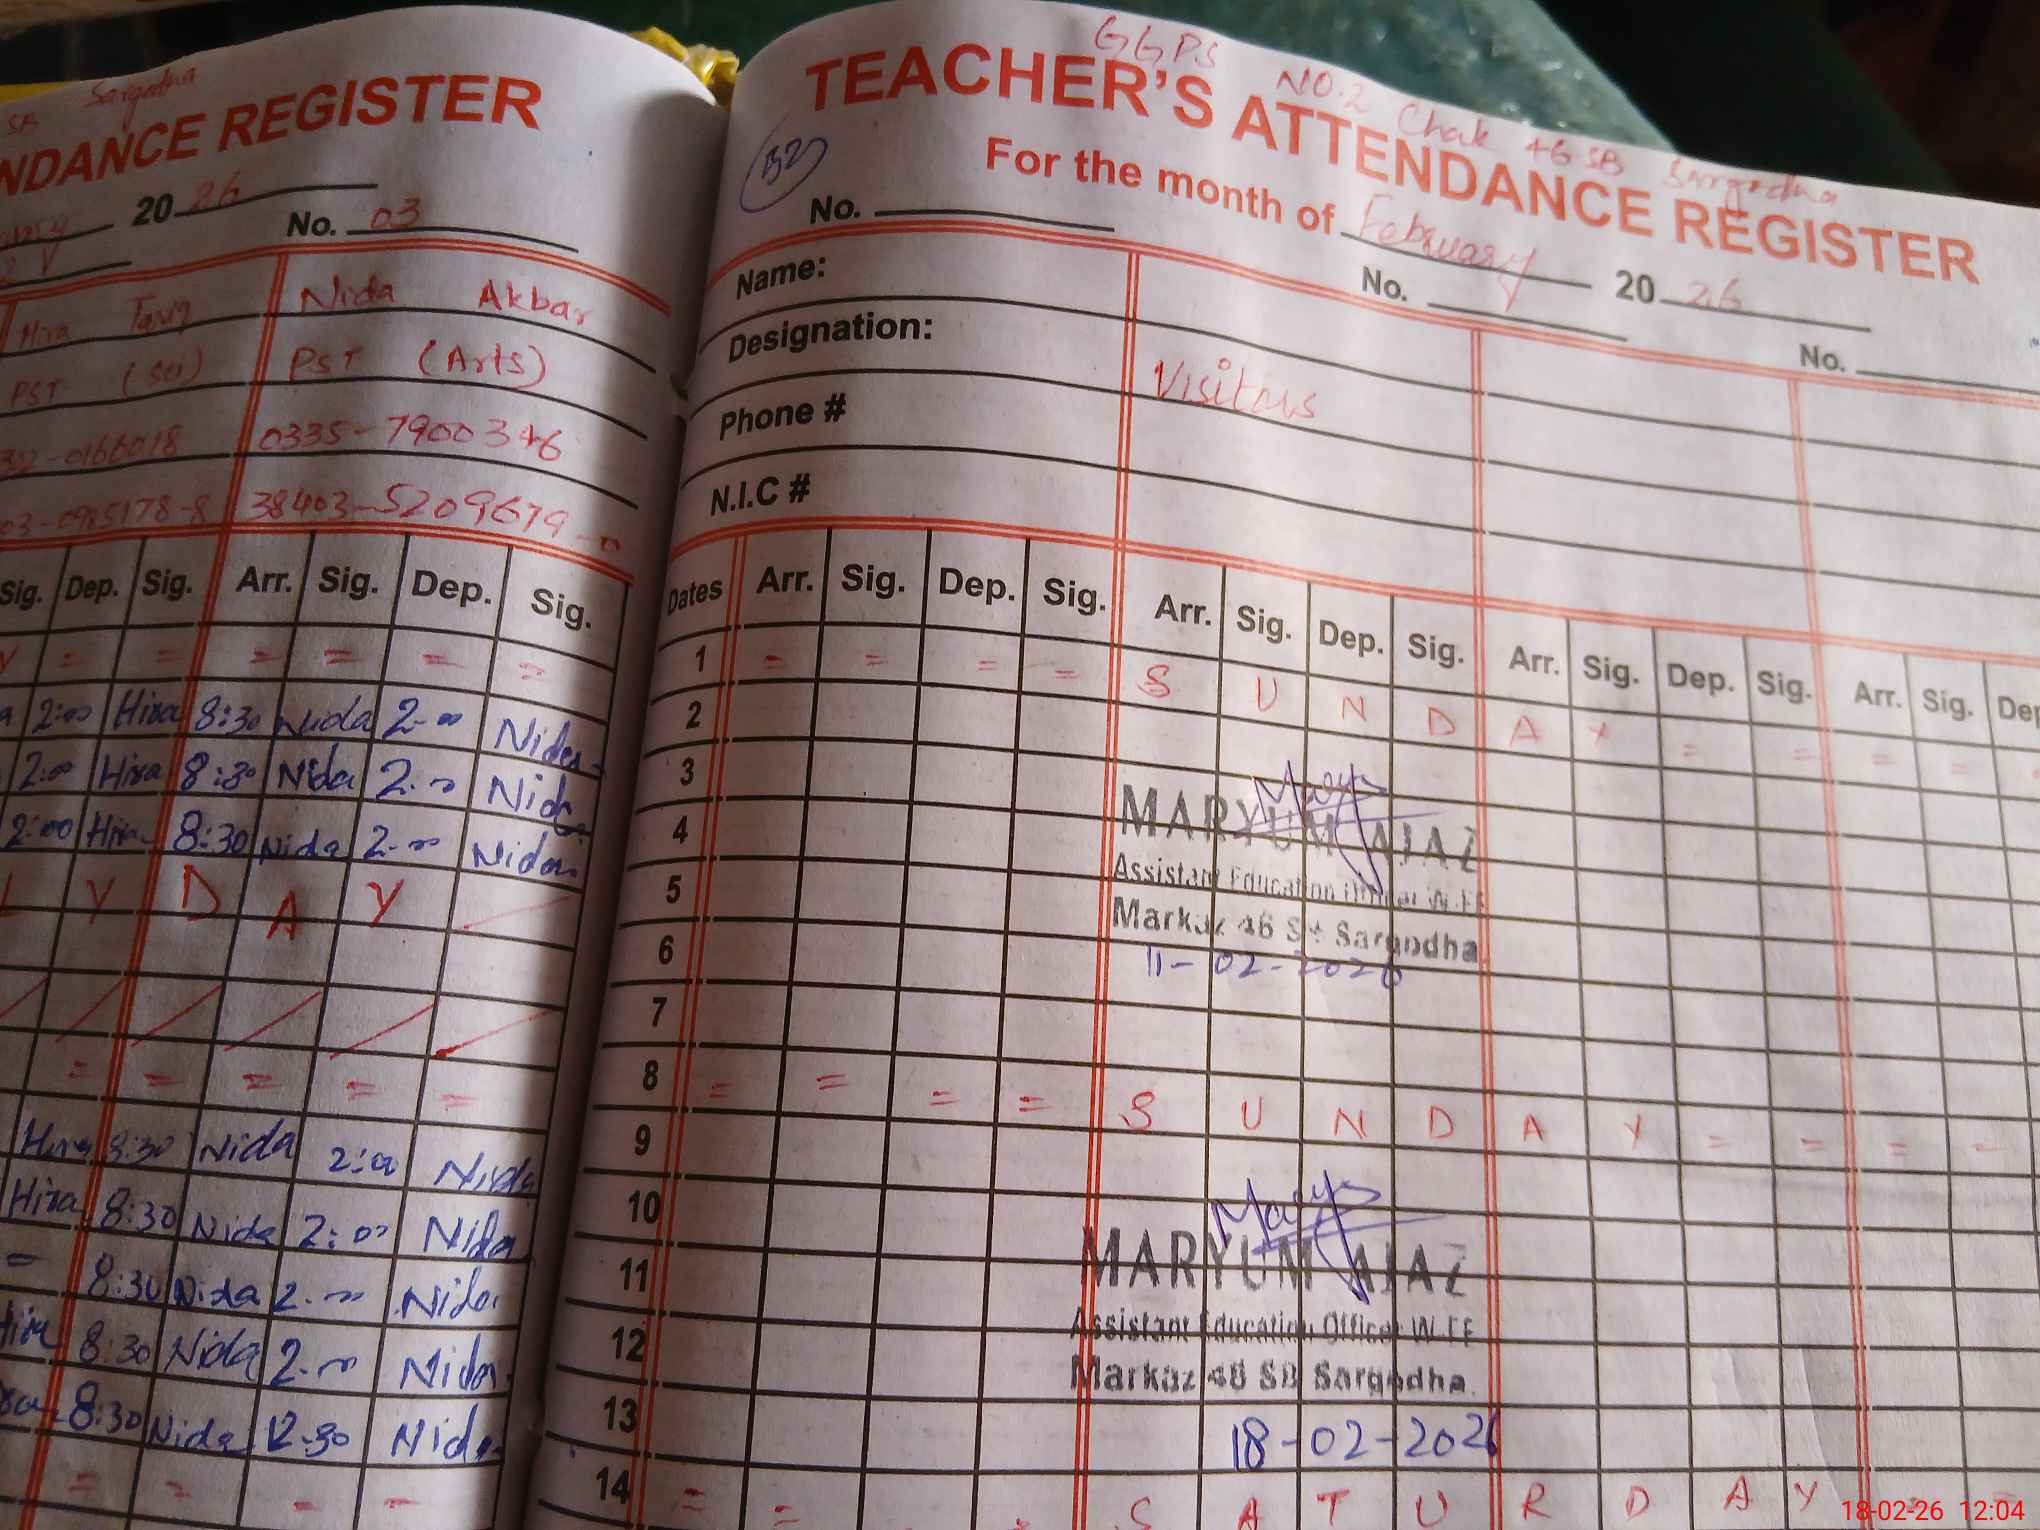 SB Sargodha
NDANCE REGISTER
20 26
No. 03
Hira Tariq
Nida Akbar
PST
PST (Arts)
0166018
0335-7900346
03-0985178-8
38403-5209679-0
Sig. Dep. Sig. Arr. Sig. Dep. Sig.
= = = = = =
2:00 Hira 8:30 Nida 2:00 Nida
2:00 Hira 8:30 Nida 2:00 Nida
2:00 Hira 8:30 Nida 2:00 Nida
Y D A Y
= = = = =
Hira 8:30 Nida 2:00 Nida
Hira 8:30 Nida 2:00 Nida
= 8:30 Nida 2:00 Nida
Hira 8:30 Nida 2:00 Nida
8:30 Nida 12:30 Nida
= = = =
GGPS NO.2 Chak 46 SB Sargodha
TEACHER'S ATTENDANCE REGISTER
52
For the month of February 2026
No.
No.
No.
Name:
Designation:
Visitors
Phone #
N.I.C #
Dates Arr. Sig. Dep. Sig. Arr. Sig. Dep. Sig. Arr. Sig. Dep. Sig. Arr. Sig. De
1 = = = = S U N D A Y = = = =
2
3
MARYUM AJAZ
4
Assistant Education Officer W-EE
5
Markaz 46 SB Sargodha
6
11-02-2026
7
8 = = = = S U N D A Y = = = =
9
10
MARYUM AJAZ
11
Assistant Education Officer W-EE
12
Markaz 46 SB Sargodha
13
18-02-2026
14 = = S A T U R D A Y
18-02-26 12:04